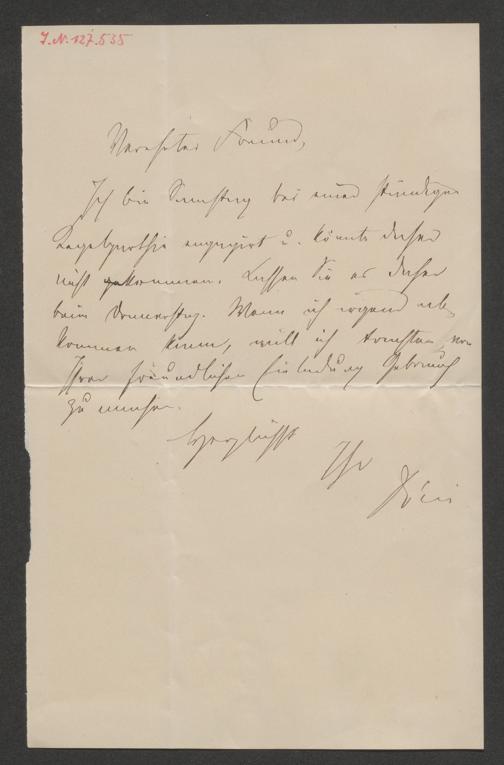 J.N. 127.535
Verehrter Freund,
Ich bin Samstag bei einer ständigen
Kegelparthie engagirt u. könnte daher
nicht kommen. Lassen Sie es daher
beim Donnerstag. Wenn ich irgend ab-
kommen kann, will ich trachten, von
Ihrer freundlichen Einladung Gebrauch
zu machen.
Herzlichst
Ihr